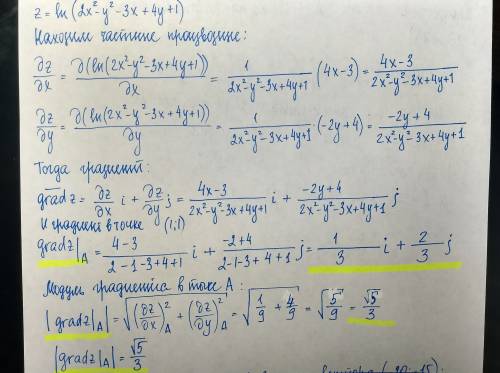 z = ln(2x²-y²-3x+4y+1)
Находим частные производные:
∂z/∂x = ∂(ln(2x²-y²-3x+4y+1))/∂x = 1/(2x²-y²-3x+4y+1) (4x-3) = (4x-3)/(2x²-y²-3x+4y+1)
∂z/∂y = ∂(ln(2x²-y²-3x+4y+1))/∂y = 1/(2x²-y²-3x+4y+1) (-2y+4) = (-2y+4)/(2x²-y²-3x+4y+1)
Тогда градиент:
grad z = ∂z/∂x i + ∂z/∂y j = (4x-3)/(2x²-y²-3x+4y+1) i + (-2y+4)/(2x²-y²-3x+4y+1) j
И градиент в точке (1;1)
grad z|A = (4-3)/(2-1-3+4+1) i + (-2+4)/(2-1-3+4+1) j = 1/3 i + 2/3 j
Модуль градиента в точке A:
|grad z|A| = √((∂z/∂x)²A + (∂z/∂y)²A) = √(1/9 + 4/9) = √(5/9) = √5/3
|grad z|A| = √5/3